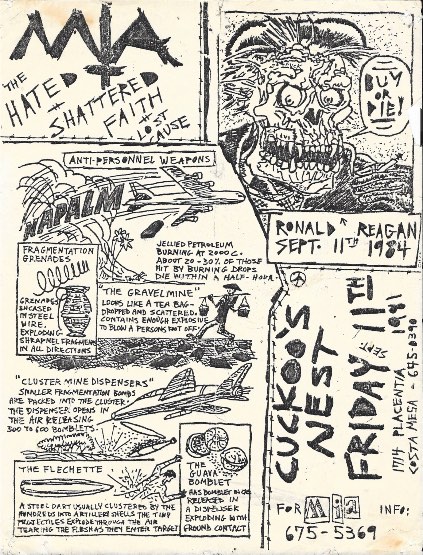 MIA
THE
HATED
+
SHATTERED
FAITH
+ LOST
CAUSE
BUY
OR
DIE!
RONALD REAGAN
SEPT. 11TH 1984
ANTI-PERSONNEL WEAPONS
NAPALM
JELLIED PETROLEUM
BURNING AT 2000 C.
ABOUT 20-30% OF THOSE
HIT BY BURNING DROPS
DIE WITHIN A HALF-HOUR
FRAGMENTATION
GRENADES
GRENADES
ENCASED
IN STEEL
WIRE,
EXPLODING
SHRAPNEL FRAGMENTS
IN ALL DIRECTIONS
"THE GRAVELMINE"
LOOKS LIKE A TEA BAG-
DROPPED AND SCATTERED.
CONTAINS ENOUGH EXPLOSIVE
TO BLOW A PERSONS FOOT OFF.
"CLUSTER MINE DISPENSERS"
SMALLER FRAGMENTATION BOMBS
ARE PACKED INTO THE CLUSTER.
THE DISPENSER OPENS IN
THE AIR RELEASING
300 TO 600 BOMBLETS.
THE FLECHETTE
A STEEL DART USUALLY CLUSTERED BY THE
HUNDREDS INTO ARTILLERY SHELLS THE TINY
PROJECTILES EXPLODE THROUGH THE AIR
TEARING THE FLESH AS THEY ENTER TARGET
THE
GUAVA
BOMBLET
HAS BOMBLET
RELEASED IN
A DISPENSER
EXPLODING WITH
GROUND CONTACT
CUCKOO'S
NEST
FRIDAY 11TH
SEPT. 1981
1714 PLACENTIA
COSTA MESA 645-0390
FOR MIA INFO:
675-5369